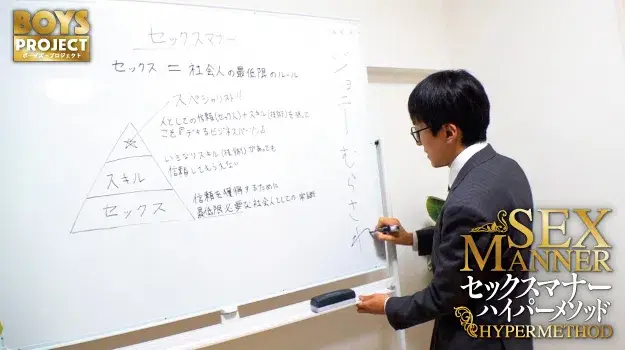 BOYS
PROJECT
ボーイズ・プロジェクト
セックスマナー
セックス = 社会人の最低限のルール
スペシャリスト!!
人としての信頼(セックス)+スキル(技術)を持って
こそ"デキるビジネスパーソン"
いろなりスキル(技術)があっても
信頼してもらえない
スキル
信頼を獲得するために
最低限必要な社会人としての常識
セックス
ジョニーむらさき
SEX
MANNER
セックスマナー
ハイパーメソッド
HYPERMETHOD